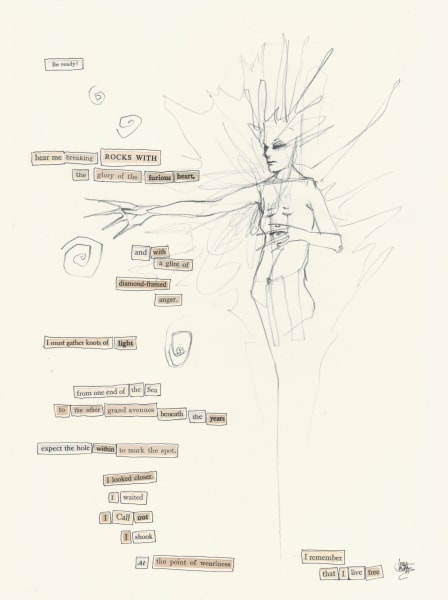 Be ready!
hear me breaking ROCKS WITH
the glory of the furious heart,
and with
a glint of
diamond-framed
anger.
I must gather knots of light
from one end of the Sea
to the other grand avenues beneath the years
expect the hole within to mark the spot.
I looked closer.
I waited
I Call out
I shook
At the point of weariness
I remember
that I live free